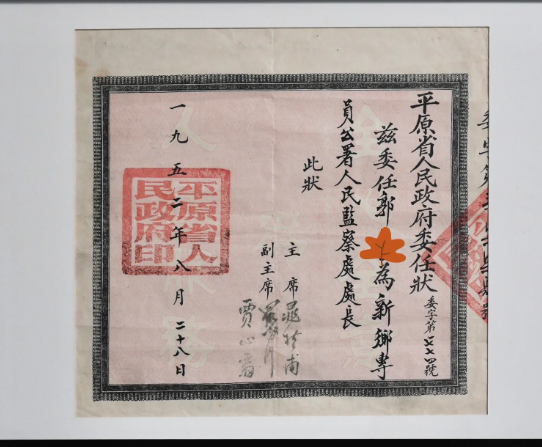 平原省人民政府委任狀
委字第
號
茲委任郭
為新鄉專
員公署人民監察處處長
此狀
主席
副主席 賈心齋
一九五二年八月二十八日
平原省人
民政府印